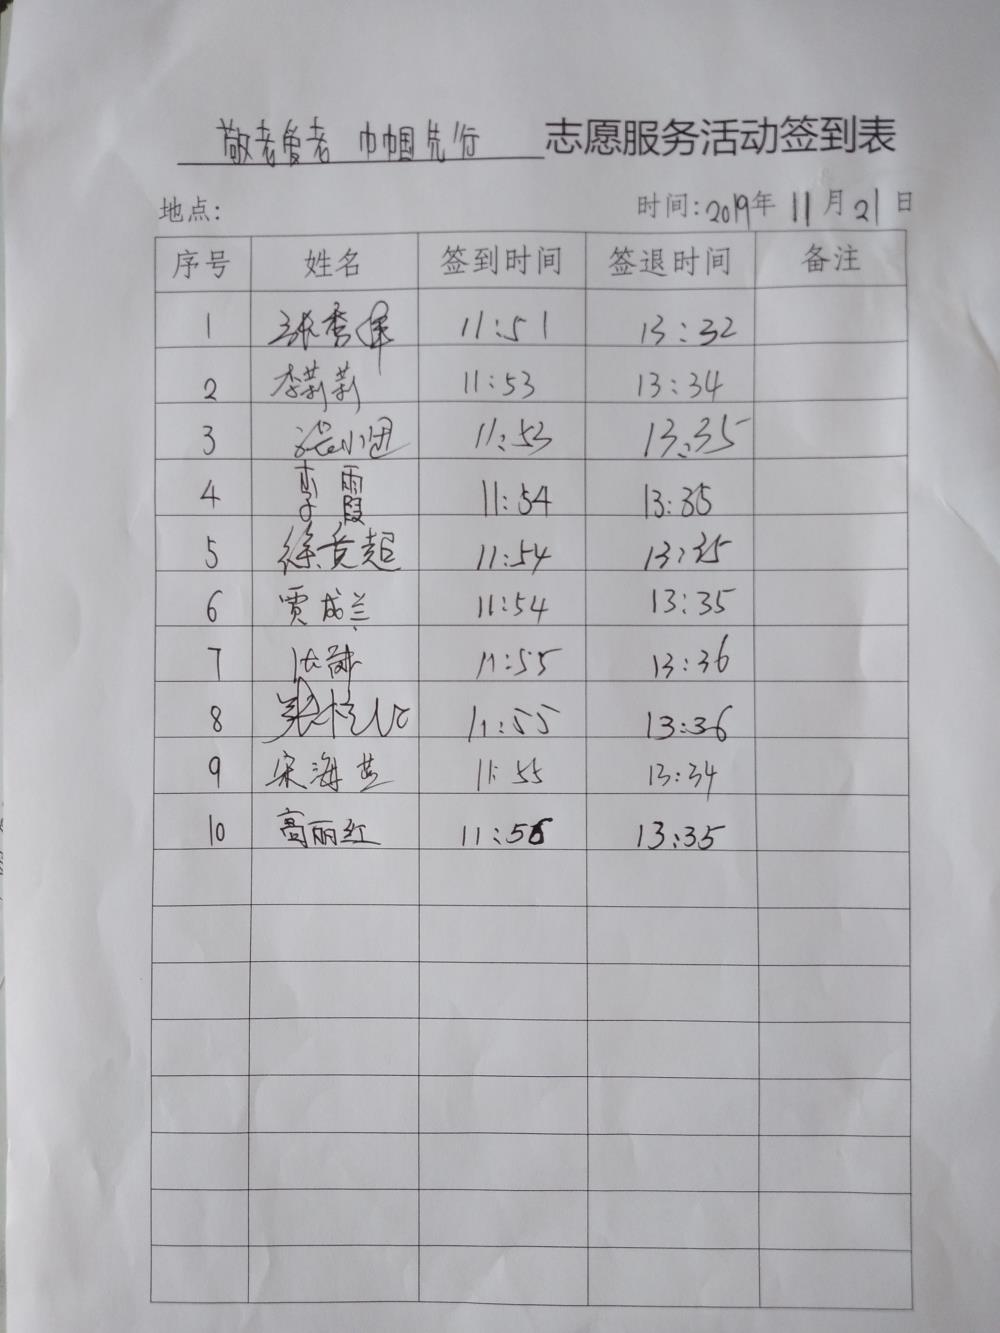 敬老爱老 巾帼先行 志愿服务活动签到表
地点: 时间:2019年11月21日
序号 姓名 签到时间 签退时间 备注
1 张秀军 11:51 13:32
2 李莉莉 11:53 13:34
3 11:53 13:35
4 李霞 11:54 13:35
5 徐贵超 11:54 13:35
6 贾成兰 11:54 13:35
7 11:55 13:36
8 11:55 13:36
9 宋海燕 11:55 13:34
10 高丽红 11:56 13:35